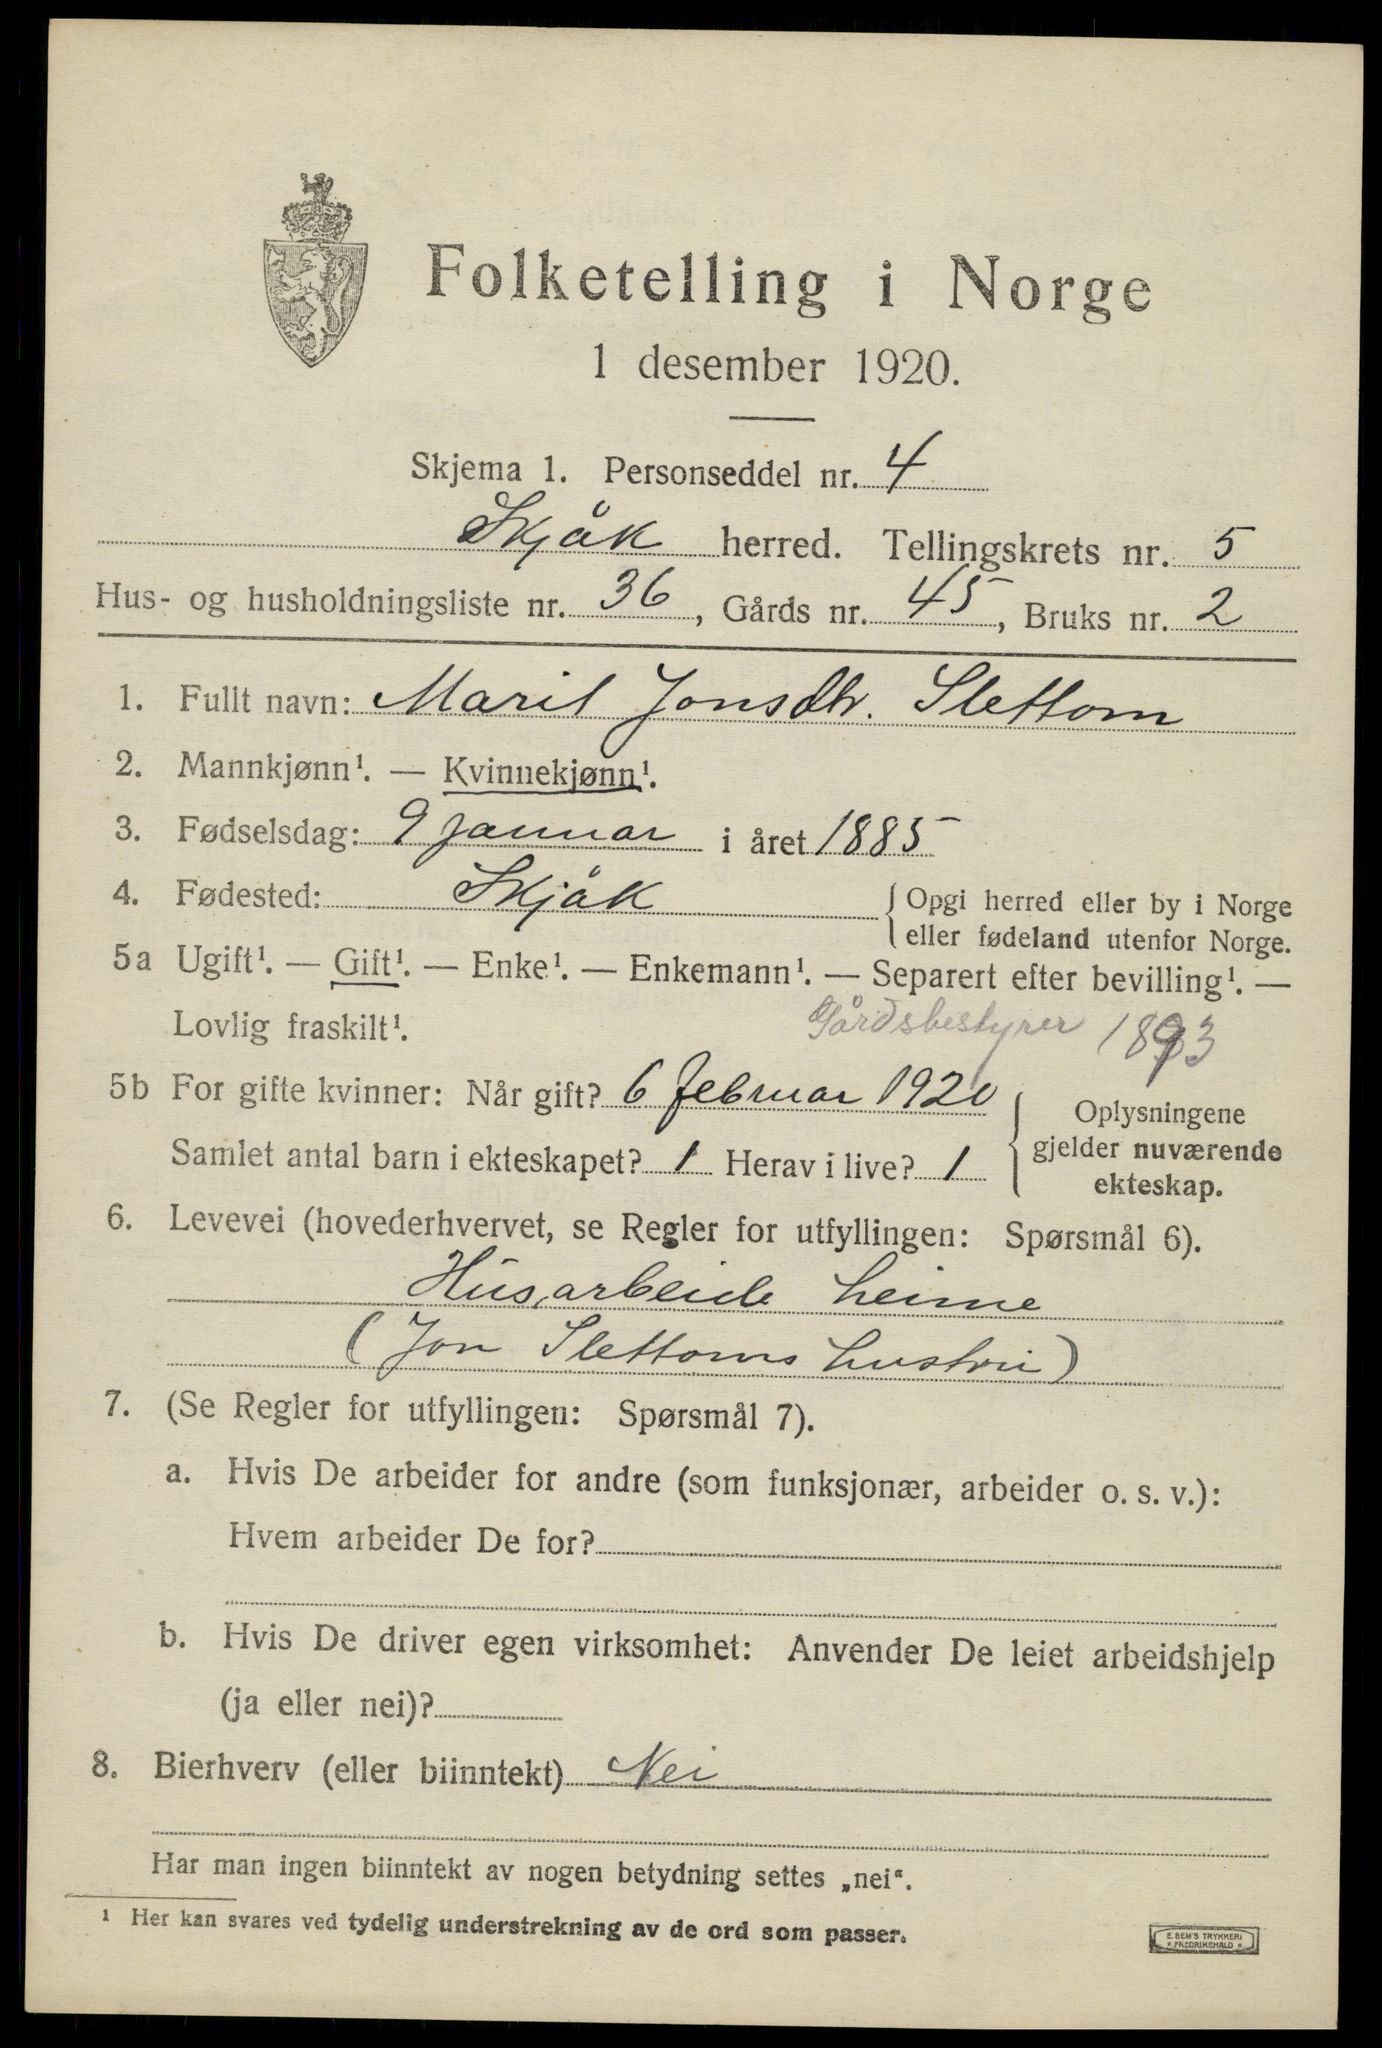 Folketelling i Norge
1 desember 1920.
Skjema 1. Personseddel nr. 4
Skjåk herred. Tellingskrets nr. 5
Hus- og husholdningsliste nr. 36, Gårds nr. 45, Bruks nr. 2
1. Fullt navn: Marit Jonsdtr. Slettom
2. Mannkjønn¹. — Kvinnekjønn¹.
3. Fødselsdag: 9 januar i året 1885
4. Fødested: Skjåk { Opgi herred eller by i Norge
eller fødeland utenfor Norge.
5a Ugift¹. — Gift¹. — Enke¹. — Enkemann¹. — Separert efter bevilling¹. —
Lovlig fraskilt¹. Gårdsbestyrer 1893
5b For gifte kvinner: Når gift? 6 februar 1920
Samlet antal barn i ekteskapet? 1 Herav i live? 1
{ Oplysningene
gjelder nuværende
ekteskap.
6. Levevei (hovederhvervet, se Regler for utfyllingen: Spørsmål 6).
Husarbeide heime
(Jon Slettoms hustru)
7. (Se Regler for utfyllingen: Spørsmål 7).
a. Hvis De arbeider for andre (som funksjonær, arbeider o. s. v.):
Hvem arbeider De for?
b. Hvis De driver egen virksomhet: Anvender De leiet arbeidshjelp
(ja eller nei)?
8. Bierhverv (eller biinntekt) Nei
Har man ingen biinntekt av nogen betydning settes „nei“.
¹ Her kan svares ved tydelig understrekning av de ord som passer.
E. BEM'S TRYKKERI
* FREDRIKSHALD *